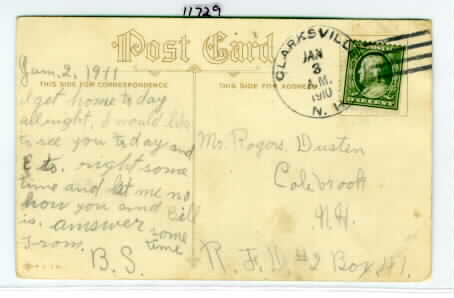 11729
Post Card
THIS SIDE FOR CORRESPONDENCE
THIS SIDE FOR ADDRESS
CLARKSVILLE
JAN
3
A.M.
1910
N. H.
1 CENT 1
Jan. 2, 1911
I get home to day
allright, I would like
to see you to day and
right some
time and let me no
how you and Bill
is. amswer some
time
From.
B. S.
Mr. Rogers Dusten
Colebrook
N.H.
R. F. D #2 Box